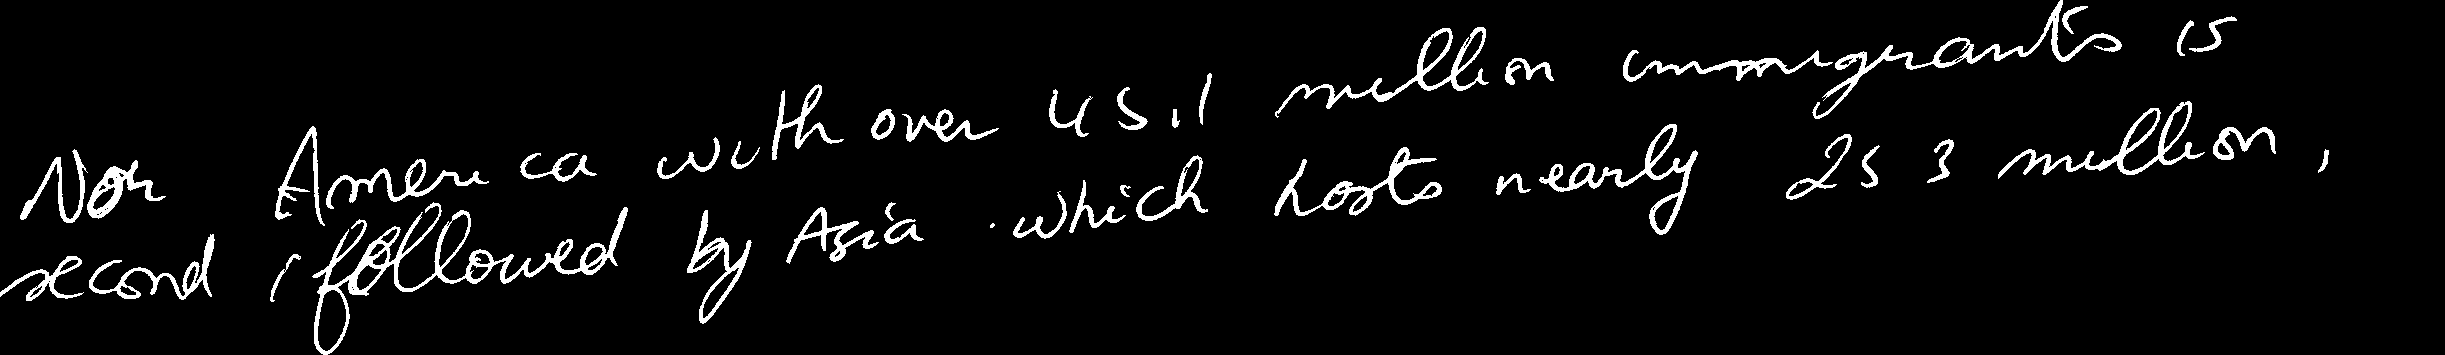 Nor America with over 45,1 million immigrants is
second, followed by Asia which hosts nearly 25 3 million,